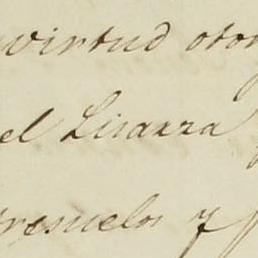 virtud oto
el Lisarra
resuelos y